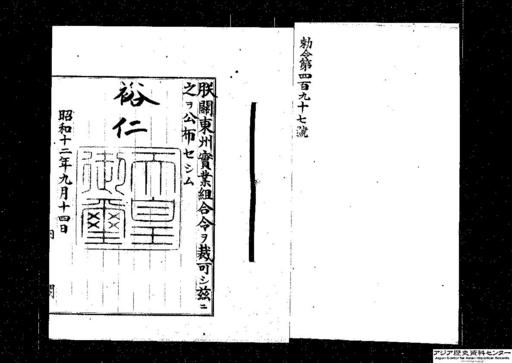 勅令第四百九十七號
朕關東州實業組合令ヲ裁可シ茲ニ
之ヲ公布セシム
裕仁
天皇
御璽
昭和十二年九月十四日
内閣
アジア歴史資料センター
Japan Center for Asian Historical Records